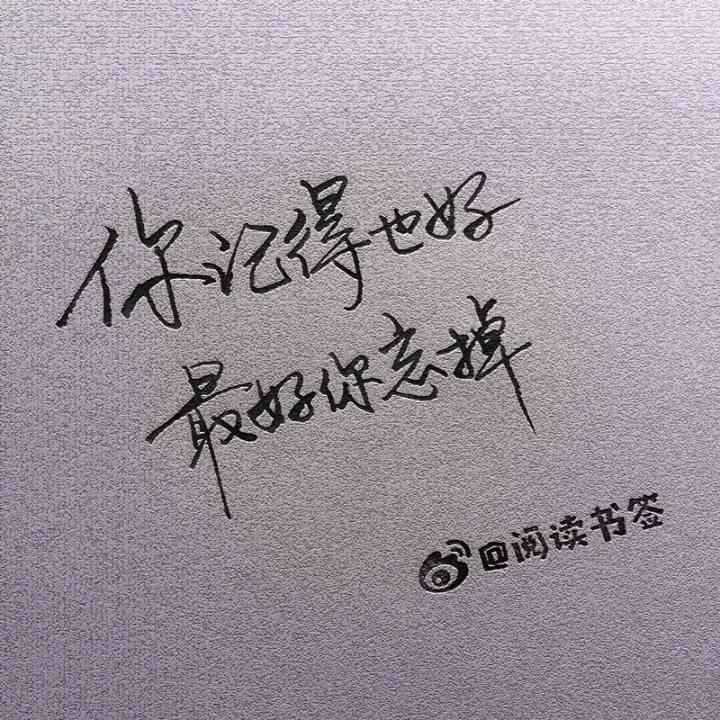 你记得也好
最好你忘掉
@阅读书签